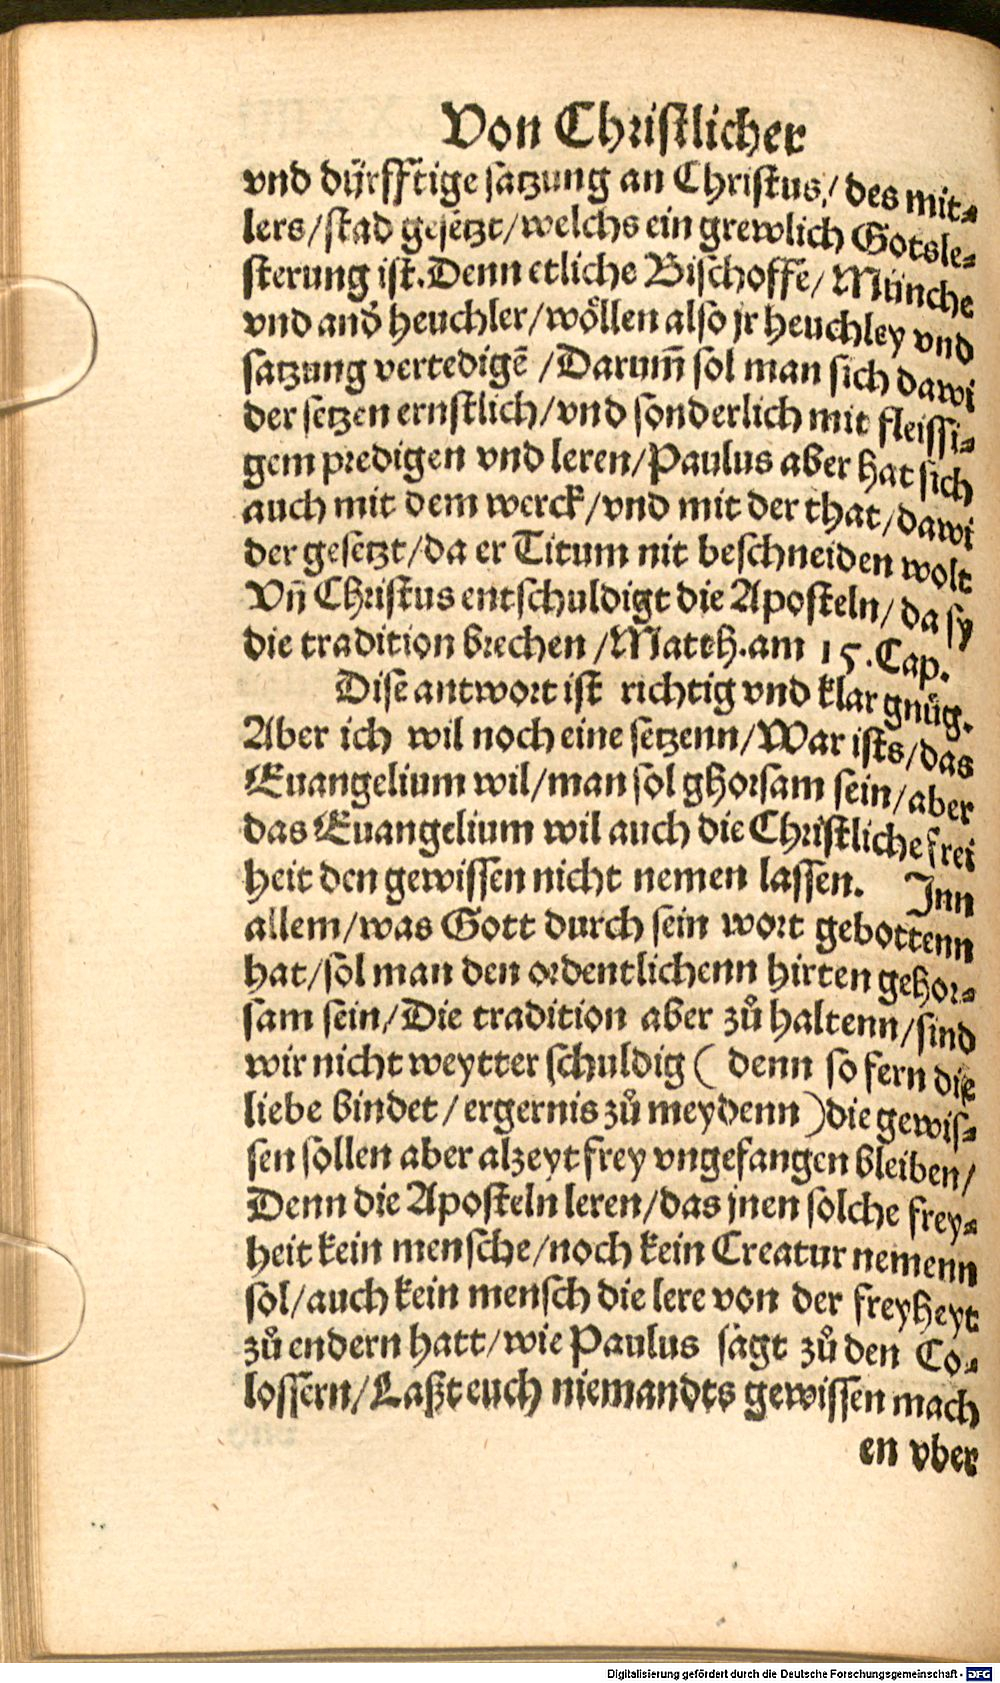 Von Christlicher
vnd dürfftige satzung an Christus/ des mit⸗
lers/stad gesetzt/welchs ein grewlich Gotsle⸗
sterung ist.Denn etliche Bischoffe/ Münche
vnd andď heuchler/wöllen also jr heuchley vnd
satzung vertedigē /Darum̃ sol man sich dawi
der setzen ernstlich/vnd sonderlich mit fleissi⸗
gem predigen vnd leren/Paulus aber hat sich
auch mit dem werck/vnd mit der that/dawi
der gesetzt/da er Titum nit beschneiden wolt
Vñ Christus entschuldigt die Aposteln/ da sy
die tradition brechen /Matth.am 15.Cap.
Dise antwort ist richtig vnd klar gnůg.
Aber ich wil noch eine setzenn/War ists/das
Euangelium wil/man sol ghorsam sein/aber
das Euangelium wil auch die Christliche frei
heit den gewissen nicht nemen lassen. Inn
allem/was Gott durch sein wort gebottenn
hat/sol man den ordentlichenn hirten gehor⸗
sam sein/Die tradition aber zů haltenn/sind
wir nicht weytter schuldig ( denn so fern die
liebe bindet/ergernis zů meydenn )die gewis⸗
sen sollen aber alzeyt frey vngefangen bleiben/
Denn die Aposteln leren/das jnen solche frey⸗
heit kein mensche/noch kein Creatur nemenn
sol/auch kein mensch die lere von der freyheyt
zů endern hatt/wie Paulus sagt zů den Co⸗
lossern/Laßt euch niemandts gewissen mach
en vber
Digitalisierung gefördert durch die Deutsche Forschungsgemeinschaft - DFG